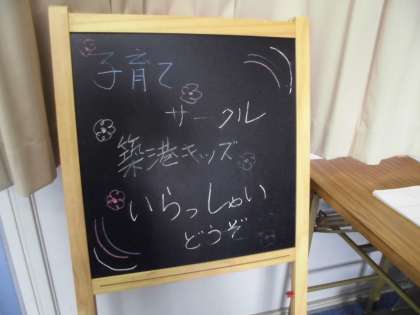 子育て
サークル
築港キッズ
いらっしゃい
どうぞ